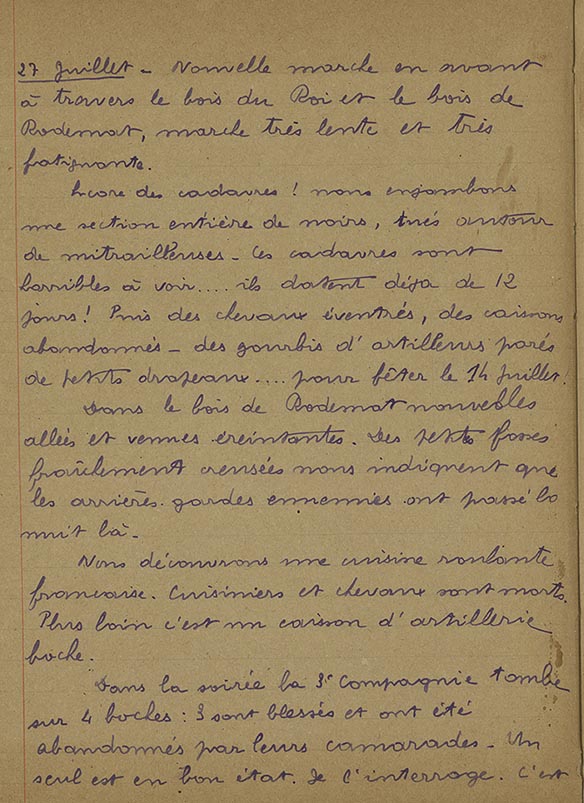 27 Juillet - Nouvelle marche en avant
à travers le bois du Roi et le bois de
Rodemat, marche très lente et très
fatignante.
Encore des cadavres ! nous enjambons
une section entière de noirs, tués autour
de mitrailleuses - Ces cadavres sont
horribles à voir.... ils datent déja de 12
jours ! Puis des chevaux éventrés, des caissons
abandonnés - des gourbis d'artilleurs parés
de petits drapeaux.... pour fêter le 14 Juillet !
Dans le bois de Rodemat nouvelles
allées et venues éreintantes. Des petits fosses
fraîchement creusées nous indiquent que
les arrières-gardes ennennies ont passé la
nuit là -
Nous découvrons une cuisine roulante
francaise. Cuisiniers et chevaux sont morts.
Plus loin c'est un caisson d'artillerie
boche.
Dans la soirée la 3e Compagnie tombe
sur 4 boches : 3 sont blessés et ont été
abandonnés par leurs camarades - Un
seul est en bon état. Je l'interroge. C'est